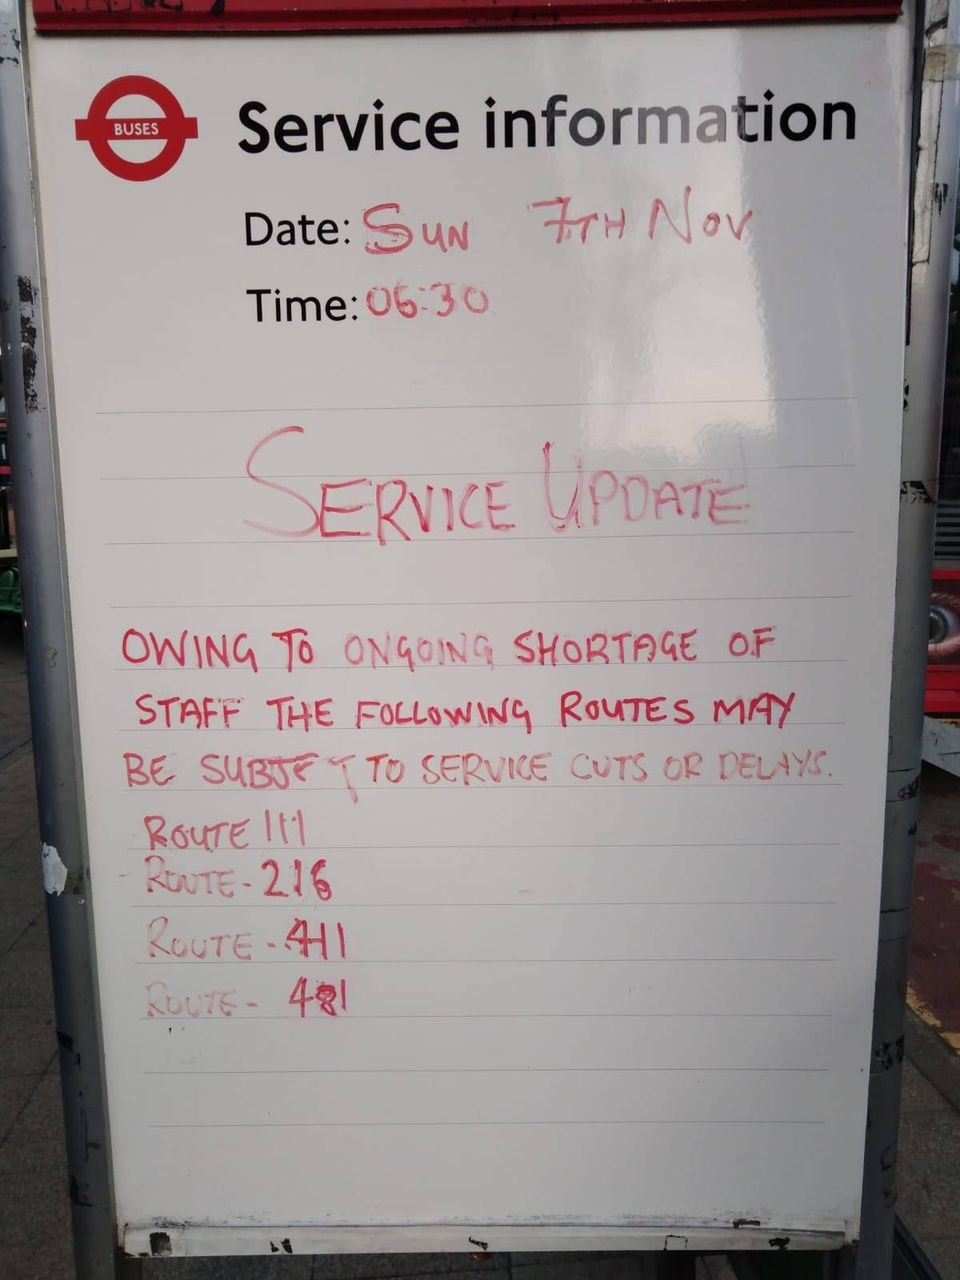 BUSES
Service information
Date: SUN 7TH NOV
Time: 06:30
SERVICE UPDATE
OWING TO ONGOING SHORTAGE OF
STAFF THE FOLLOWING ROUTES MAY
BE SUBJECT TO SERVICE CUTS OR DELAYS.
ROUTE 111
ROUTE - 216
ROUTE - 411
ROUTE - 481